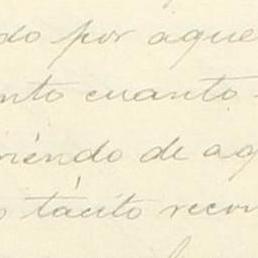 do por aque
nto cuanto
riendo de aq
o tácito recon